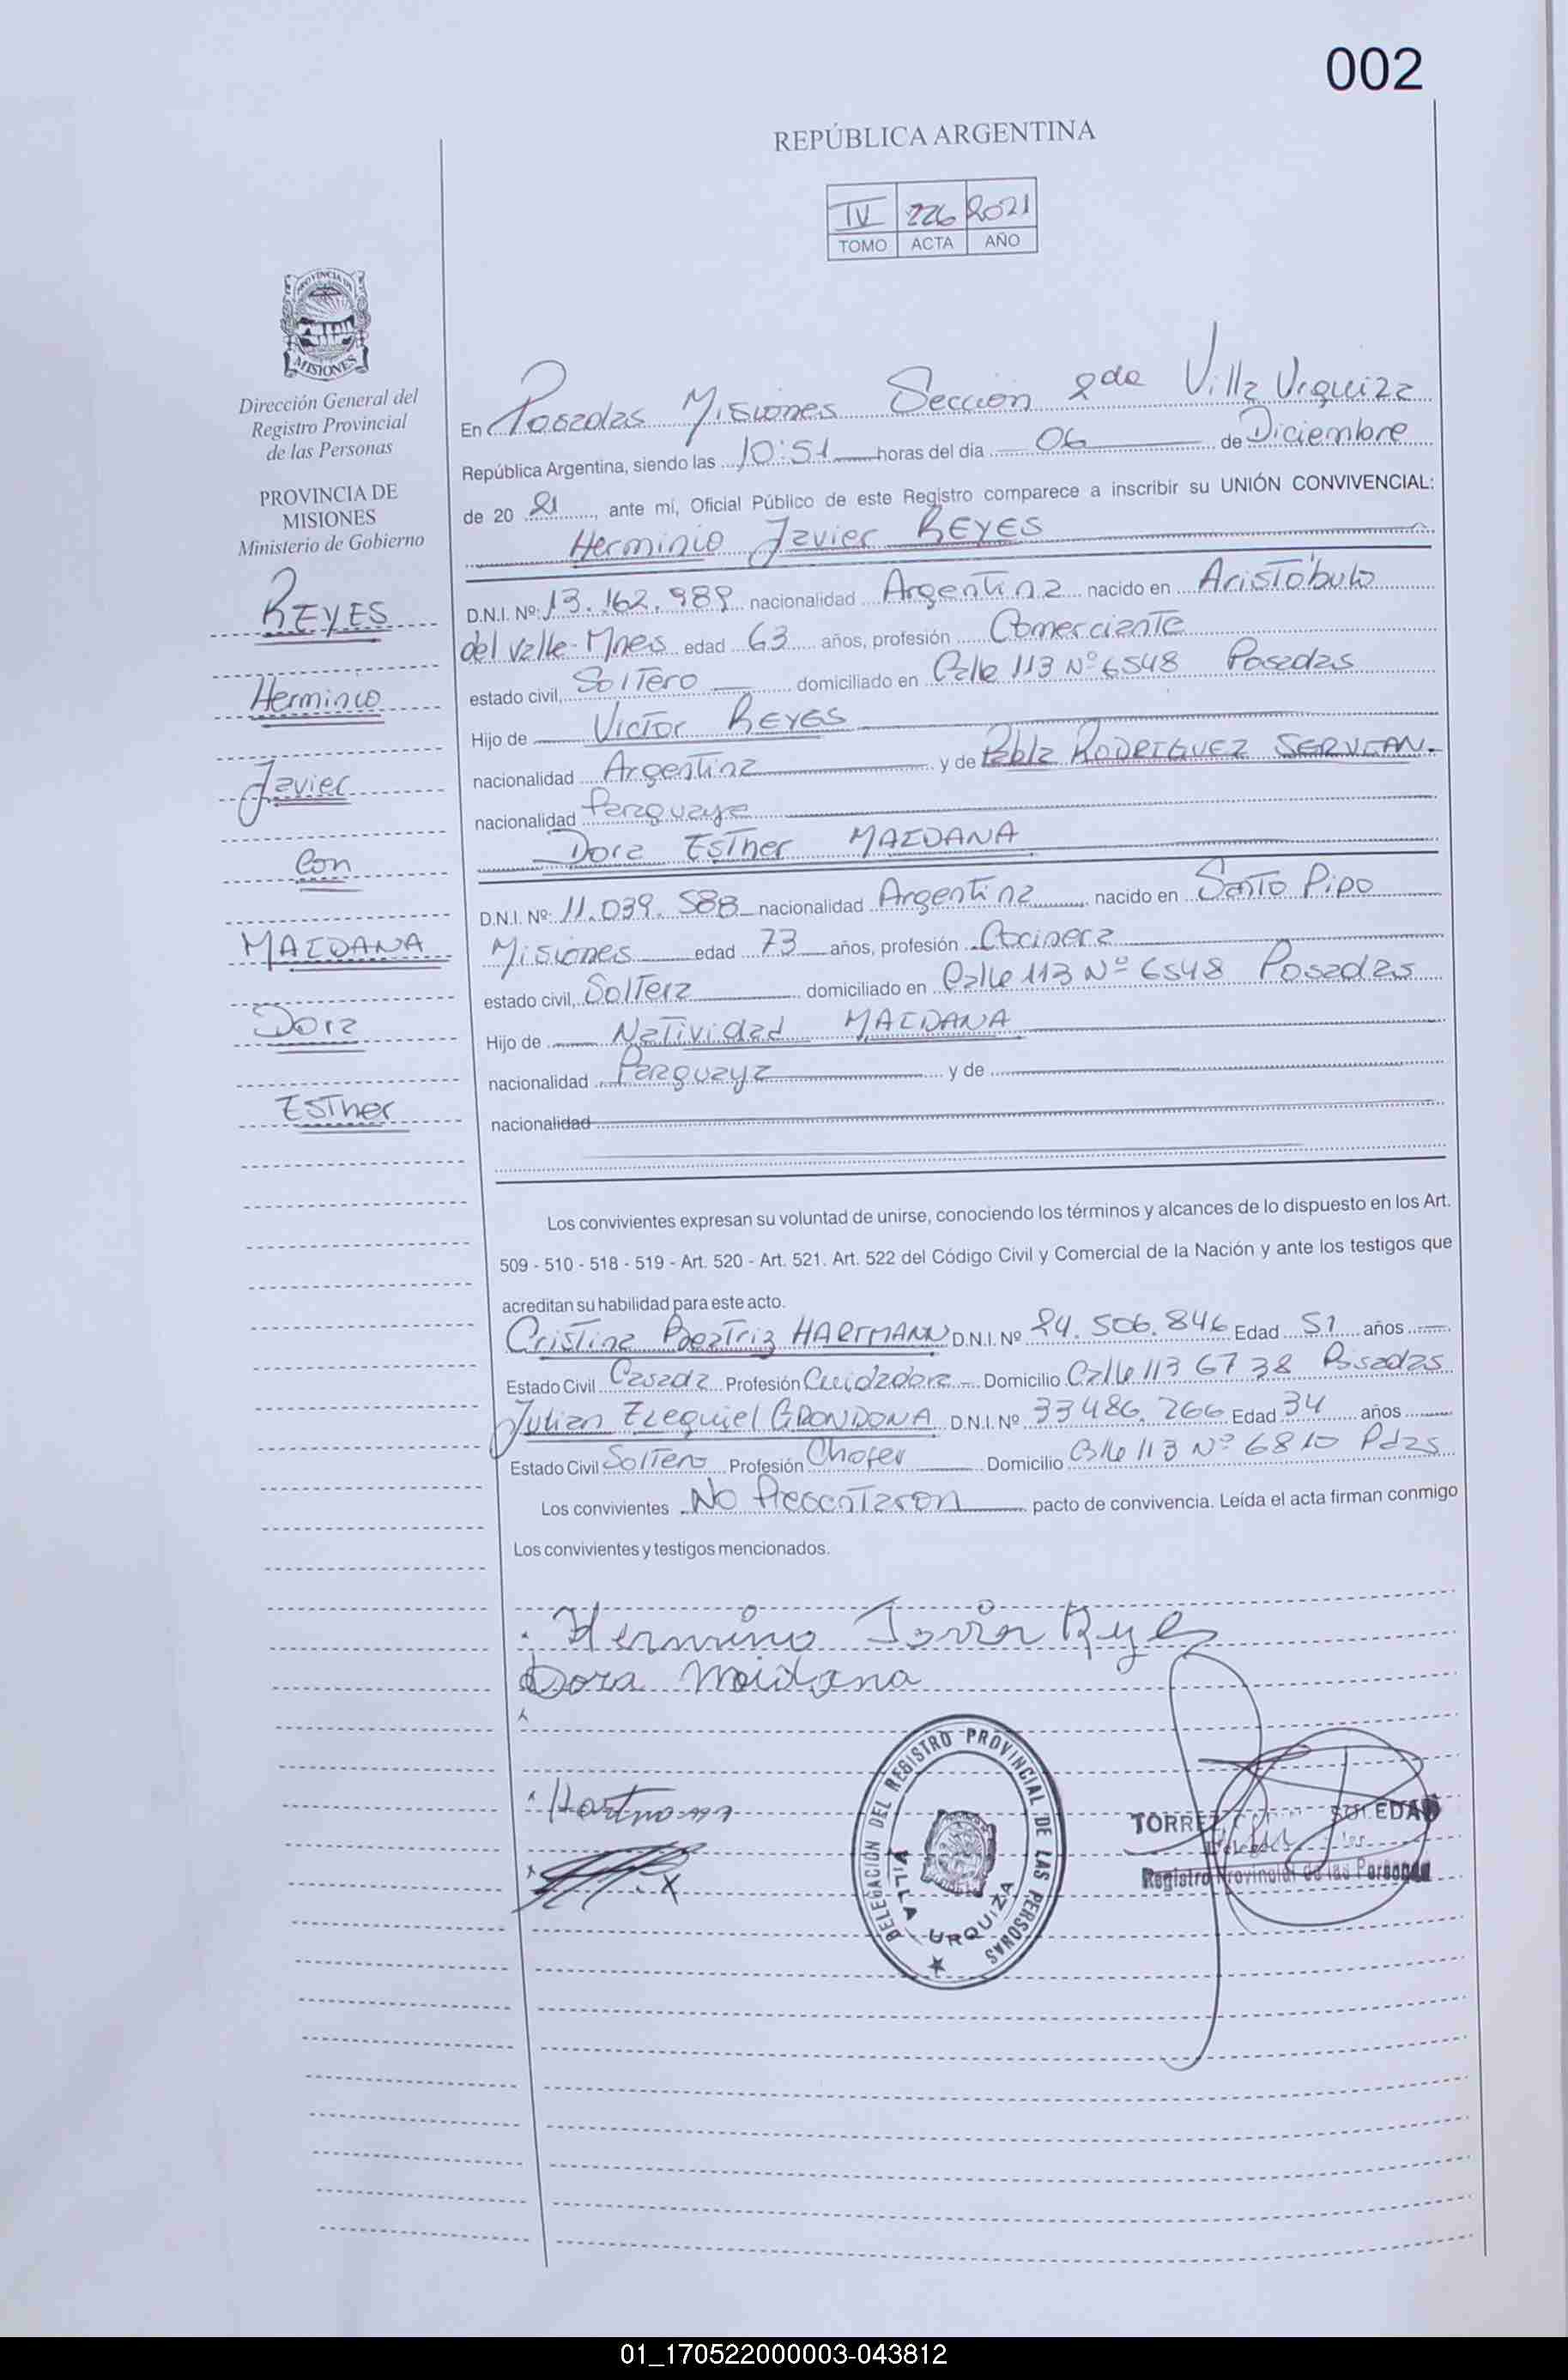 002
REPÚBLICA ARGENTINA
IV 226 2021
TOMO ACTA AÑO
PROVINCIA DE
MISIONES
Dirección General del
Registro Provincial
de las Personas
PROVINCIA DE
MISIONES
Ministerio de Gobierno
REYES
Herminio
Javier
Con
MAIDANA
Dora
Esther
En Posadas Misiones Sección 2da Villa Urquiza
República Argentina, siendo las 10:51 horas del día 06 de Diciembre
de 20 21, ante mí, Oficial Público de este Registro comparece a inscribir su UNIÓN CONVIVENCIAL:
Herminio Javier REYES
D.N.I. Nº: 13.162.989 nacionalidad Argentina nacido en Aristóbulo
del Valle-Mnes edad 63 años, profesión Comerciante
estado civil, Soltero domiciliado en Calle 113 Nº 6548 Posadas
Hijo de Victor REYES
nacionalidad Argentina y de Pabla RODRIGUEZ SERVIAN.
nacionalidad Paraguaya
Dora Esther MAIDANA
D.N.I. Nº: 11.039.588 nacionalidad Argentina nacido en Santo Pipo
Misiones edad 73 años, profesión Cocinera
estado civil, Soltera domiciliado en Calle 113 Nº 6548 Posadas
Hijo de Natividad MAIDANA
nacionalidad Paraguaya y de
nacionalidad
Los convivientes expresan su voluntad de unirse, conociendo los términos y alcances de lo dispuesto en los Art.
509 - 510 - 518 - 519 - Art. 520 - Art. 521. Art. 522 del Código Civil y Comercial de la Nación y ante los testigos que
acreditan su habilidad para este acto.
Cristina Beatriz HARTMANN D.N.I. Nº 24.506.846 Edad 51 años
Estado Civil Casada Profesión Cuidadora Domicilio Calle 113 6738 Posadas
Julian Ezequiel GRONDONA D.N.I. Nº 33486.266 Edad 34 años
Estado Civil Soltero Profesión Chofer Domicilio Calle 113 Nº 6810 Pdas
Los convivientes No Presentaron pacto de convivencia. Leída el acta firman conmigo
Los convivientes y testigos mencionados.
Herminio Javier Reyes
Dora Maidana
Hartmann
DELEGACIÓN DEL REGISTRO PROVINCIAL DE LAS PERSONAS
VILLA URQUIZA
TORREZ SOLEDAD
Registro Provincial de las Personas
01_170522000003-043812